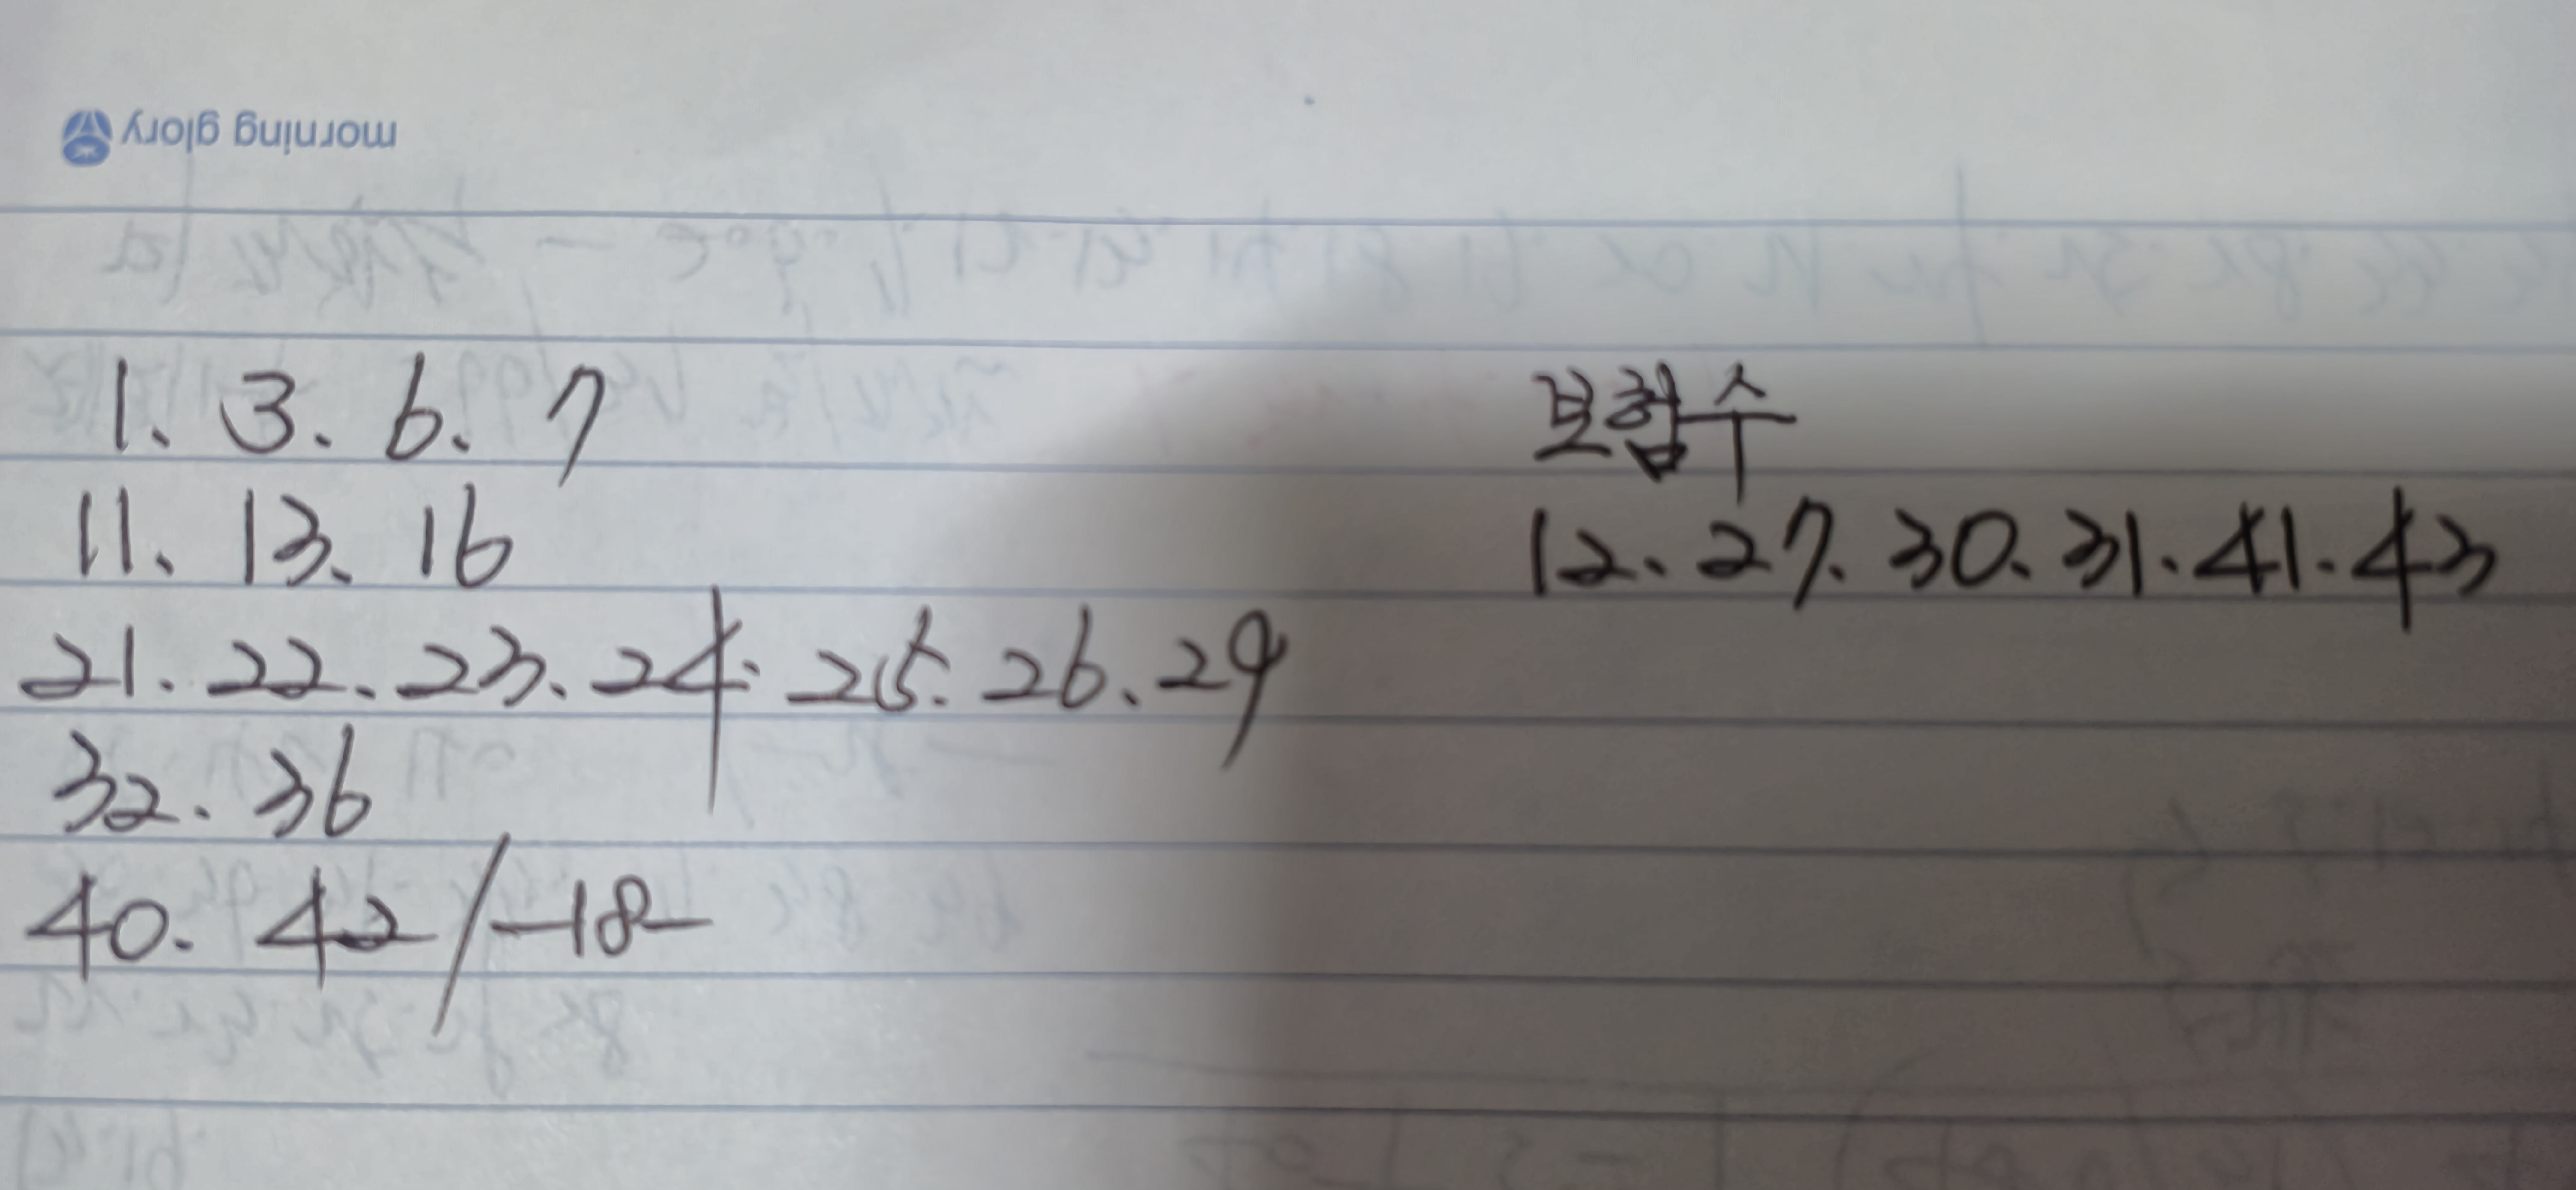 morning glory
1. 3. 6. 7
11. 13. 16
21. 22. 23. 24. 25. 26. 29
32. 36
40. 42 / -18-
보험수
12. 27. 30. 31. 41. 43